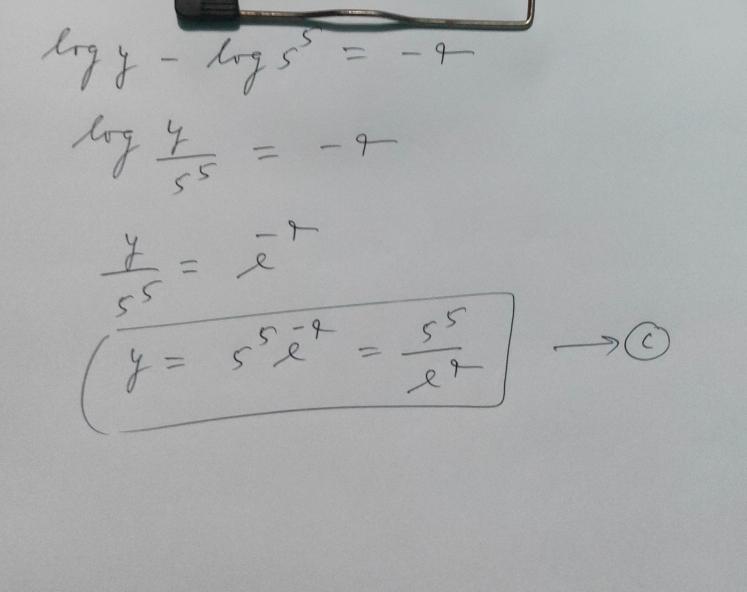 log y - log 5^5 = -4
log y/5^5 = -4
y/5^5 = e^-4
y = 5^5 e^-4 = 5^5/e^4 → (c)